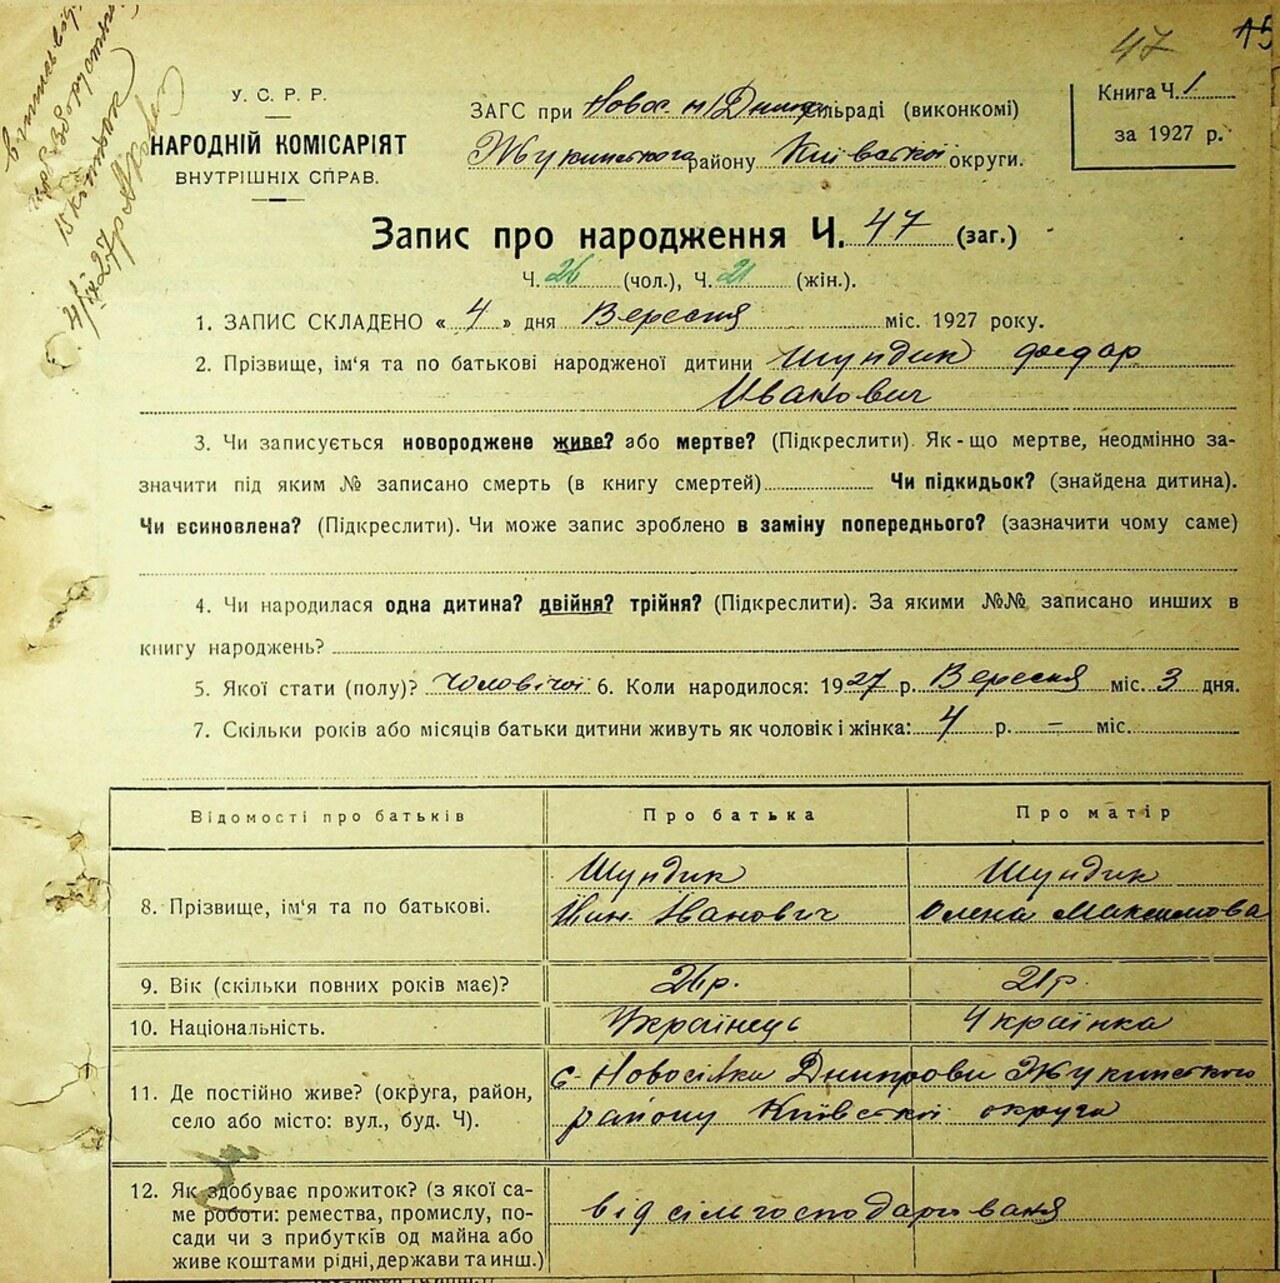 47 15
У. С. Р. Р.
НАРОДНІЙ КОМІСАРІЯТ
ВНУТРІШНІХ СПРАВ.
ЗАГС при Новос. н/Дніпр сільраді (виконкомі)
Жукинського району Київської округи.
Книга Ч. 1
за 1927 р.
15 копійок
4/IX 27
Запис про народження Ч. 47 (заг.)
Ч. 26 (чол.), Ч. 21 (жін.).
1. ЗАПИС СКЛАДЕНО « 4 » дня Вересня міс. 1927 року.
2. Прізвище, ім'я та по батькові народженої дитини Шундик Федар
Иванович
3. Чи записується новороджене живе? або мертве? (Підкреслити). Як-що мертве, неодмінно за-
значити під яким № записано смерть (в книгу смертей) Чи підкидьок? (знайдена дитина).
Чи всиновлена? (Підкреслити). Чи може запис зроблено в заміну попереднього? (зазначити чому саме)
4. Чи народилася одна дитина? двійня? трійня? (Підкреслити). За якими №№ записано инших в
книгу народжень?
5. Якої стати (полу)? Чоловічої 6. Коли народилося: 1927 р. Вересня міс. 3 дня.
7. Скільки років або місяців батьки дитини живуть як чоловік і жінка: 4 р. – міс.
Відомості про батьків Про батька Про матір
8. Прізвище, ім'я та по батькові.
Шундик Шундик
Иванович Олена Максимова
9. Вік (скільки повних років має)? 26 р. 21 р.
10. Національність. Українець Українка
11. Де постійно живе? (округа, район,
село або місто: вул., буд. Ч).
с. Новосілки Днипрови Жукинського
району Київської округи
12. Як здобуває прожиток? (з якої са-
ме роботи: ремества, промислу, по-
сади чи з прибутків од майна або
живе коштами рідні, держави та инш.)
від сільгосподарованя